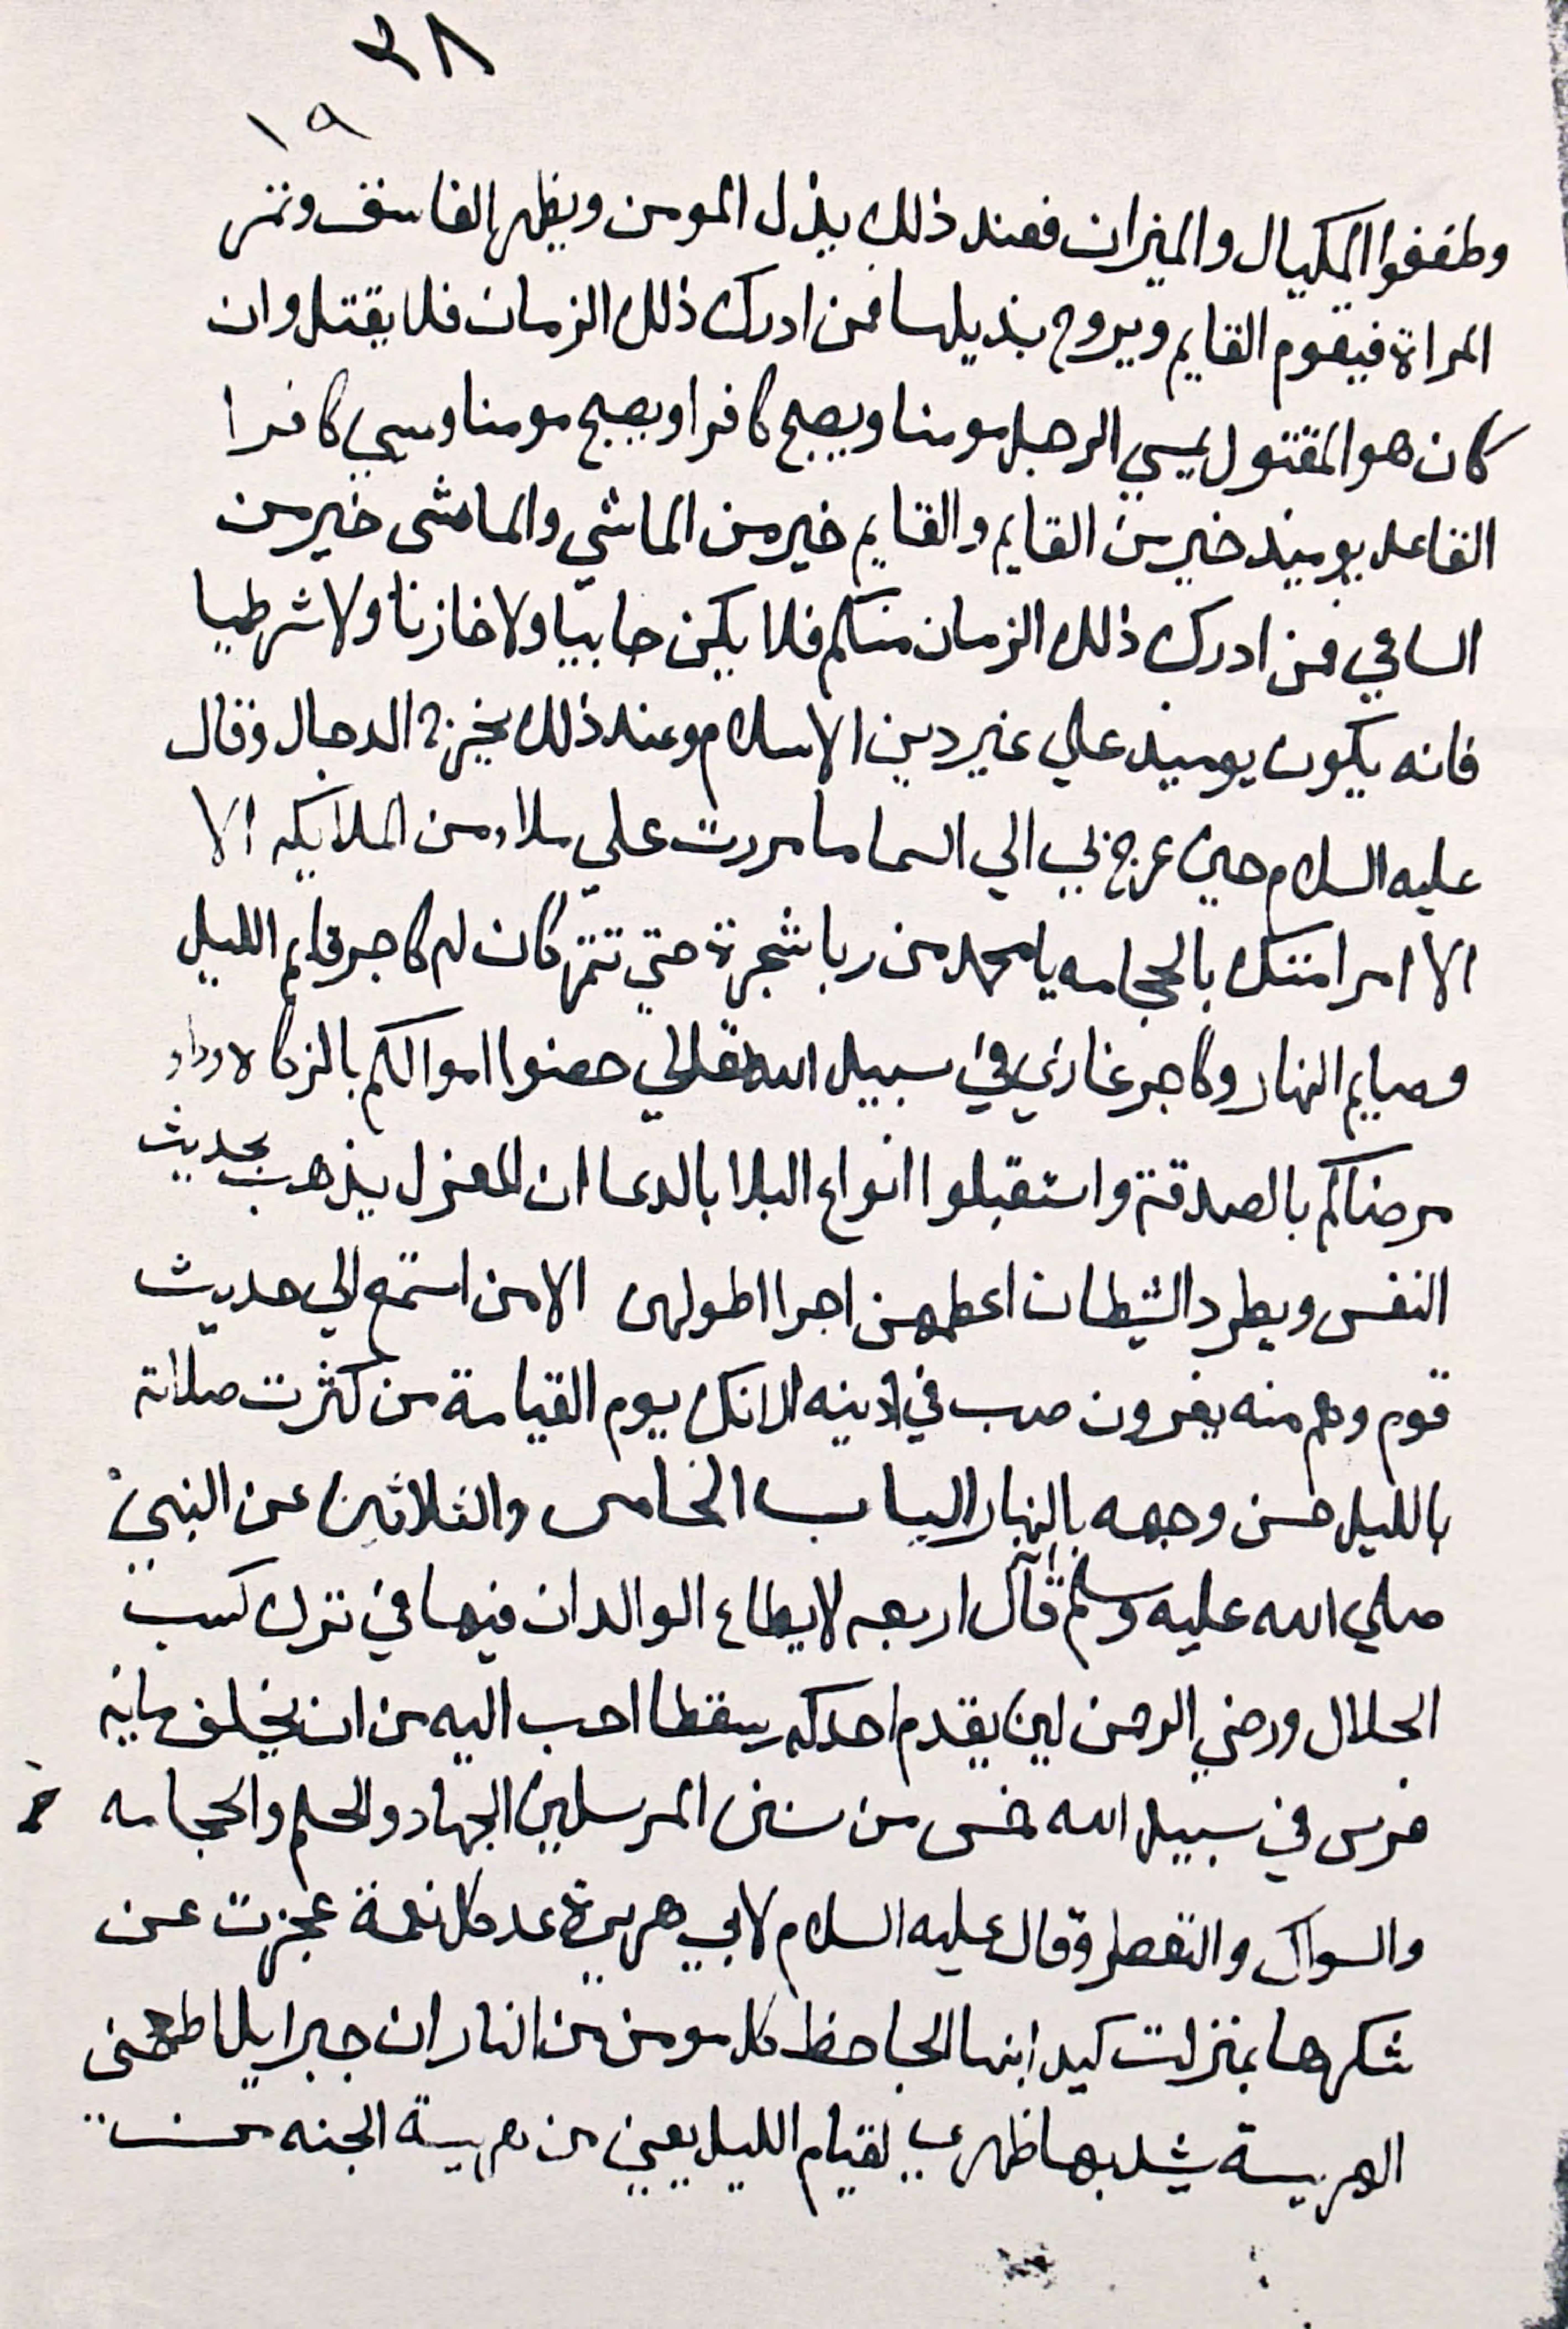 ٣٨
١٩
وطففوا المكيال والميزان فعند ذلك يذل المومن ويظهر الفاسق وتنمر
المراة فيقوم القايم ويروح بذيلها فمن ادرك ذلك الزمان فلا يقتل وان
كان هو المقتول يمسي الرجل مومنا ويصبح كافرا ويصبح مومنا ومسي كافرا
القاعد يوميذ خير من القايم والقايم خير من الماشي والماشي خير من
الساعي فمن ادرك ذلك الزمان منكم فلا يكن جابيا ولا خازنا ولا شرطيا
فانه يكون يوميذ علي غير دين الاسلام وعند ذلك يخرج الدجال وقال
عليه السلام حين عرج بي الي السما ما مررت علي ملاء من الملايكه الا
الا امر امتك بالحجامه يا محمد من ربا شجرة حتي تثمر كان له كاجر قايم الليل
وصايم النهار وكاجر غازي في سبيل الله تعالي حصنوا اموالكم بالزكاه وداو
مرضاكم بالصدقة واستقبلوا انواع البلا بالدعا ان المغزل يذهب بحديث
النفس ويطرد الشيطان اعظمهن اجرا اطولهن الا من استمع الي حديث
قوم وهم منه يفرون صب في اذنيه الانك يوم القيامة من كثرت صلاته
بالليل حسن وجهه بالنهار الباب الخامس والثلاثين عن النبي
صلي الله عليه وسلم قال اربعه لا يطاع الوالدان فيها في ترك كسب
الحلال ورضي الرحمن لين يقدم احدكم سقطا احب اليه من ان يخلف مايه
فرس في سبيل الله خمس من سنن المرسلين الجهاد والحلم والحجامه
والسواك والتعطر وقال عليه السلام لابي هريرة عد كل نعمة عجزت عن
شكرها بمنزلت كيد ابنها الجاحظ كل مومن من النار ان جبرايل اطعمني
الهريسة يشد بها ظهري لقيام الليل يعني من هريسة الجنه